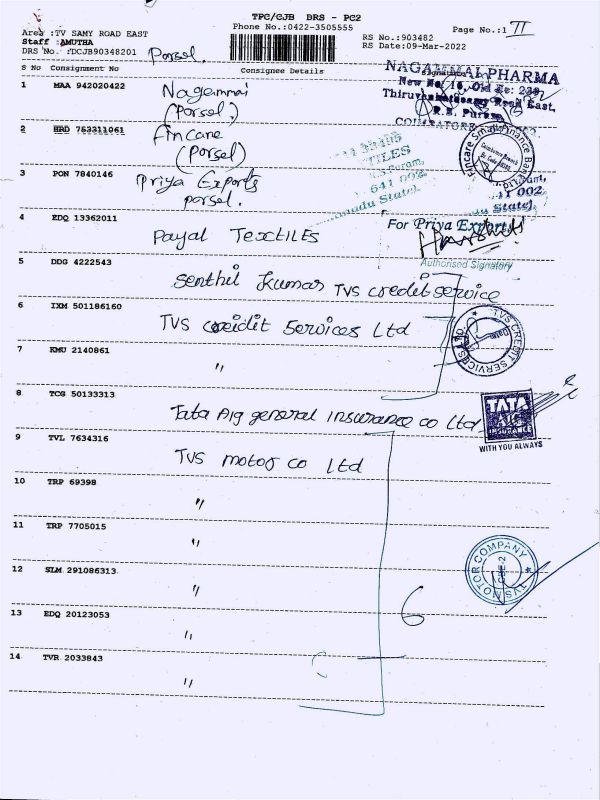 TPC/CJB DRS - PC2
Area :TV SAMY ROAD EAST
Phone No.:0422-3505555
Page No.:1 II
Staff :AMUTHA
RS No.:903482
DRS No. :DCJB90348201
Porsel.
RS Date:09-Mar-2022
S No Consignment No Consignee Details Signature
NAGAMMAI PHARMA
New No: 16, Old No: 239,
Thiruvenkatasamy Road East,
R.S. Puram,
COIMBATORE
1 MAA 942020422
Nagammai
(Porsel.)
2 HRD 783311061
Fincare
(Porsel)
Fincare Small Finance Bank Ltd
TILES
R.S. Puram,
641 002.
Tamilnadu State)
3 PON 7840146
Priya Exports
porsel.
641 002
State)
4 EDQ 13362011
Payal TEXTILES
For Priya Exports
Authorised Signatory
5 DDG 4222543
Senthil Kumar TVS credit service
6 IXM 501186160
TVS Creidit Services Ltd
TVS CREDIT SERVICES LTD.
Date
7 KMU 2140861
"
8 TCG 50133313
Tata Aig general insurance co Ltd
TATA
AIG
INSURANCE
WITH YOU ALWAYS
9 TVL 7634316
TVS motor co Ltd
10 TRP 69398
"
11 TRP 7705015
"
12 SLM 291086313
"
TVS MOTOR COMPANY
CBE 2
13 EDQ 20123053
"
6
14 TVR 2033843
"